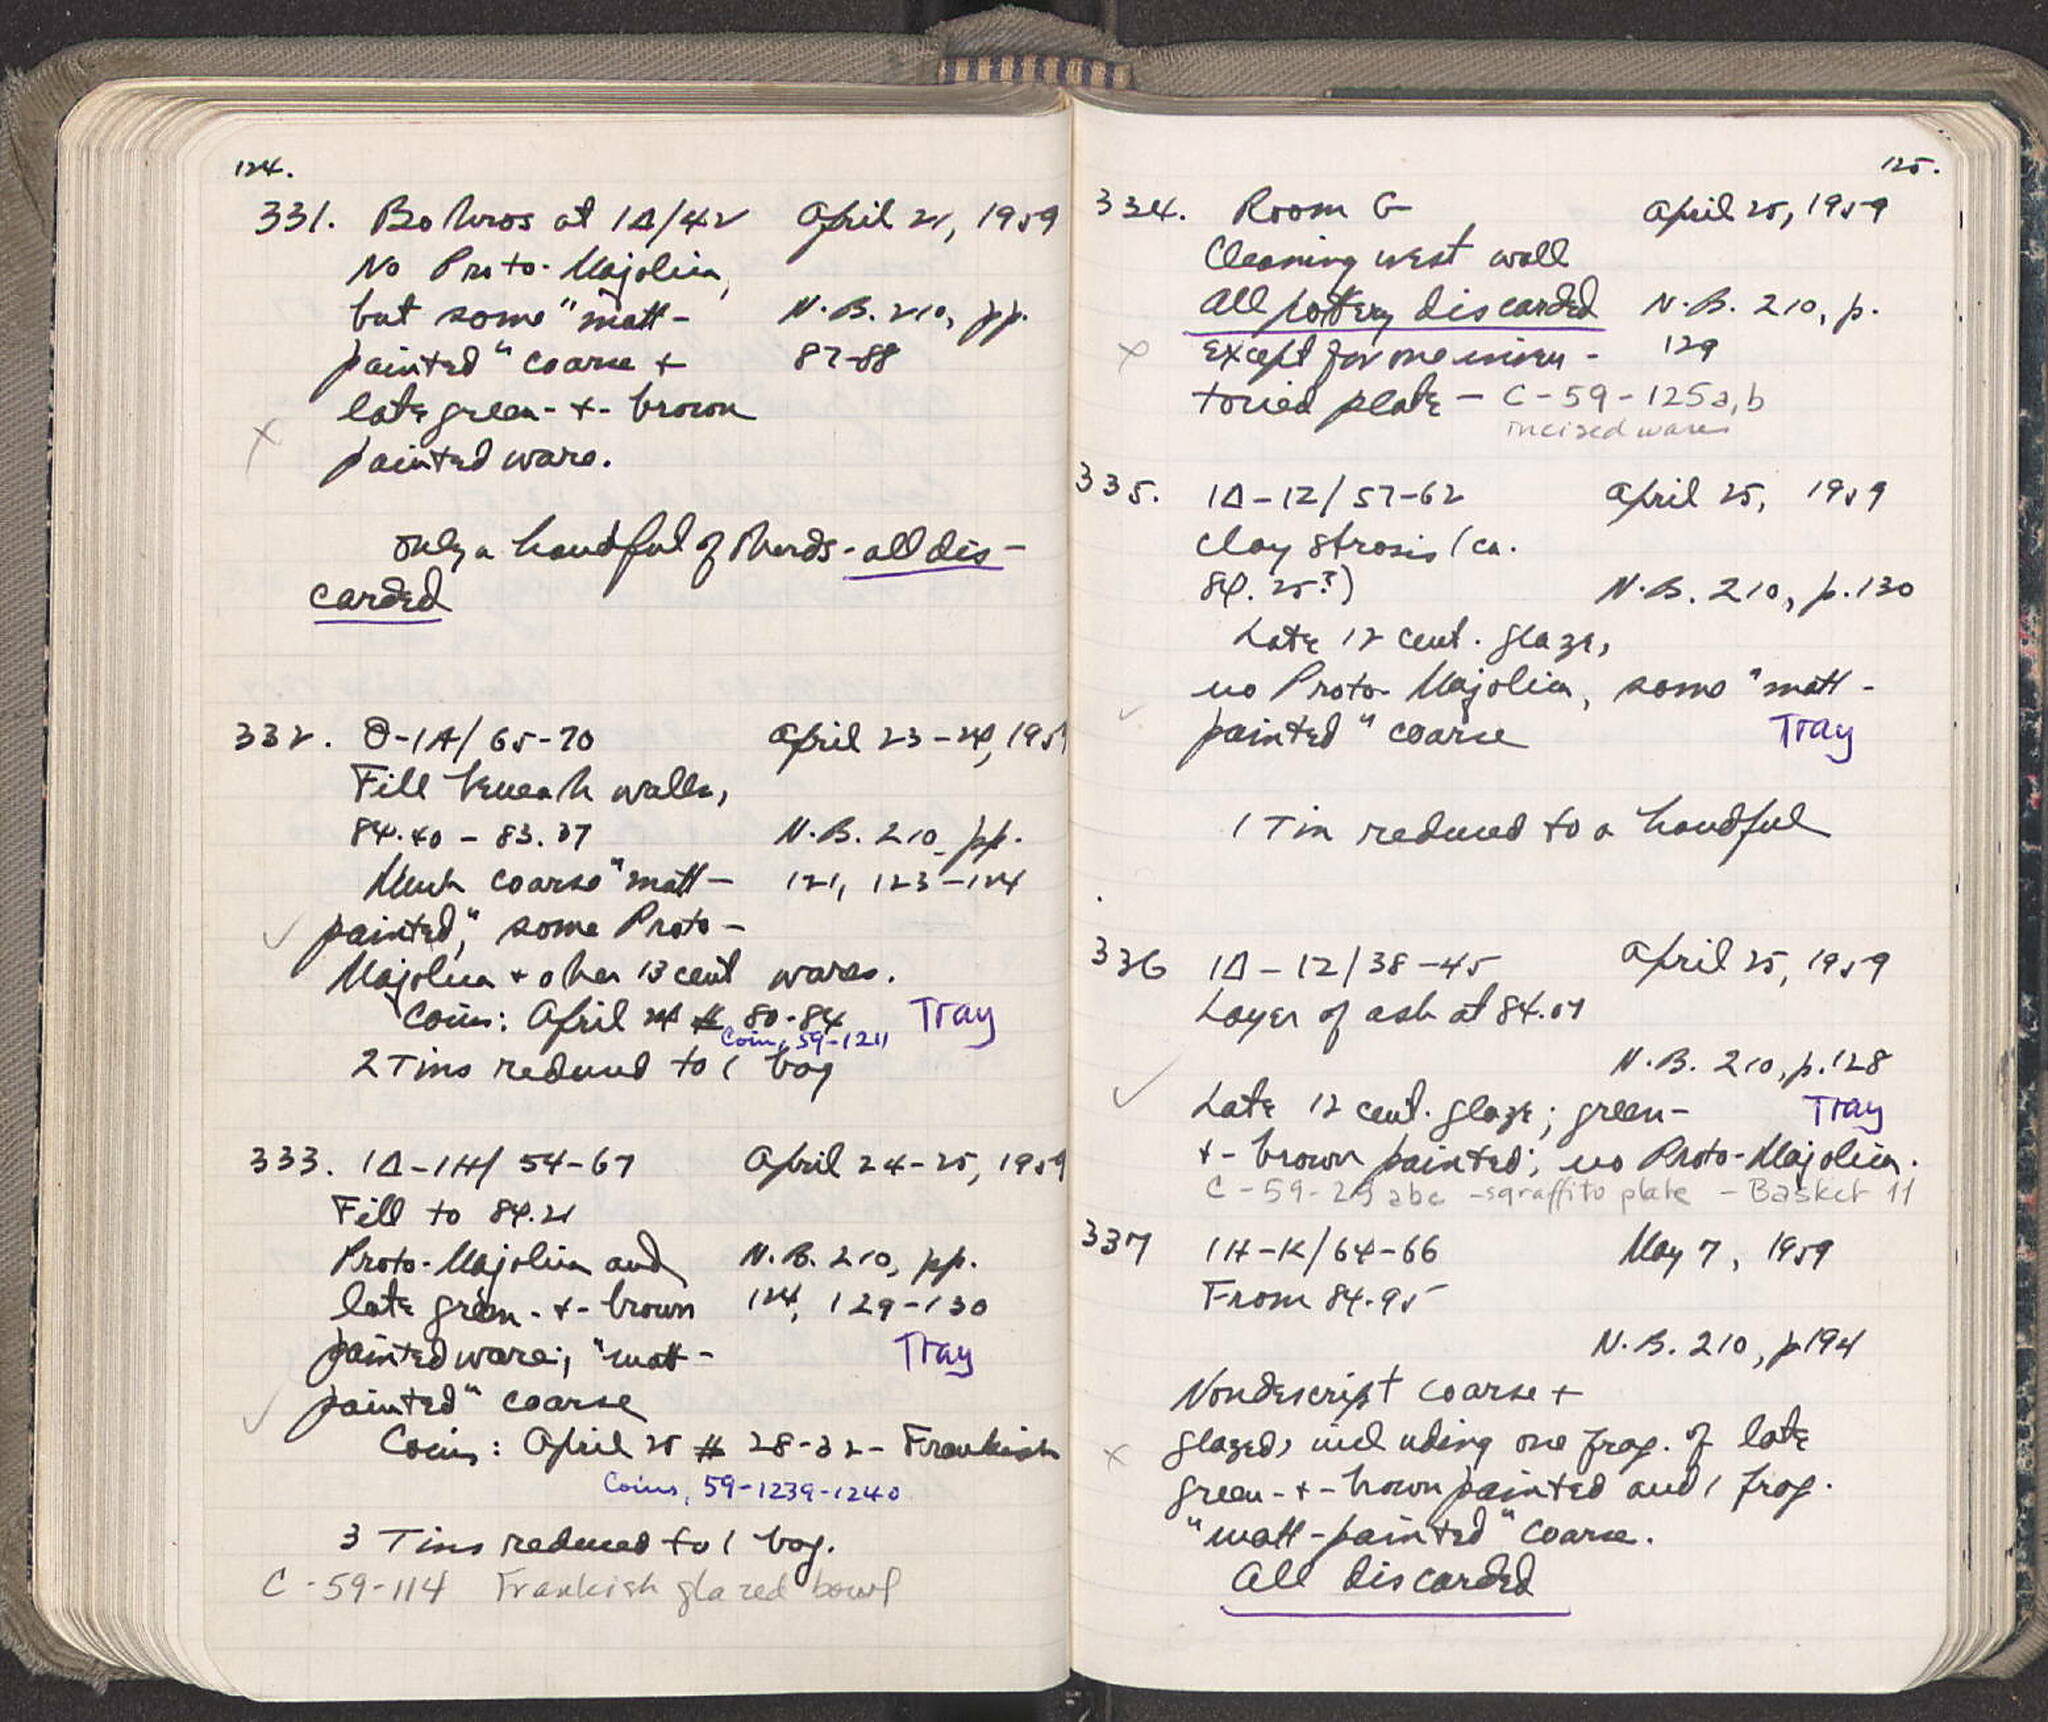 124.
331. Bothros at IΔ/42 April 21, 1959
No Proto-Majolica,
but some "matt- N.B. 210, pp.
painted" coarse + 87-88
late green-+-brown
painted ware.
only a handful of sherds - all dis-
carded
332. Θ-IA/65-70 April 23-24, 1959
Fill beneath walls,
84.40 - 83.37 N.B. 210, pp.
Much coarse "matt- 121, 123-124
painted," some Proto-
Majolica + other 13 cent wares.
Coins: April 24 # 80-84 Tray
Coin, 59-1211
2 Tins reduced to 1 bag
333. IΔ-IH/ 54-67 April 24-25, 1959
Fill to 84.21
Proto-Majolica and N.B. 210, pp.
late green-+-brown 124, 129-130
painted ware; "matt- Tray
painted" coarse
Coins: April 25 # 28-32 - Frankish
Coins, 59-1239-1240
3 Tins reduced to 1 bag.
C-59-114 Frankish glazed bowl
125.
334. Room G April 25, 1959
Cleaning west wall
All pottery discarded N.B. 210, p.
except for one inven- 129
toried plate - C-59-125a,b
incised ware
335. IΔ-IZ/57-62 April 25, 1959
Clay strosis (ca.
84.25?) N.B. 210, p.130
Late 12 cent. glaze,
no Proto-Majolica, some "matt-
painted" coarse Tray
1 Tin reduced to a handful
336 IΔ-IZ/38-45 April 25, 1959
Layer of ash at 84.07
N.B. 210, p.128
Late 12 cent. glaze; green- Tray
+-brown painted; no Proto-Majolica.
C-59-29abc -sgraffito plate - Basket 11
337 IH-K/64-66 May 7, 1959
From 84.95
N.B. 210, p194
Nondescript coarse +
glazed, including one frag. of late
green-+-brown painted and 1 frag.
"matt-painted" coarse.
All discarded